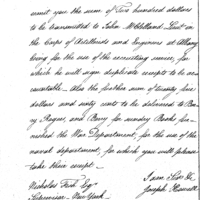 remit you the sum of Two hundred dollars
to be transmitted to John McClelland Lieut in
the Corps of Artillerists and Engineers at Albany
being for the use of the recruiting service, for
which he will sign duplicate receipt to be ac-
countable. Also the further sum of twenty five
dollars and sixty cents to be delivered to
and for sundry Books fur-
nished the War Department, for the use of the
naval department, for which you will please
take their receipt.
I am Sir &c
Nicholas Fish Esqr Joseph Howell
Supervisor New York